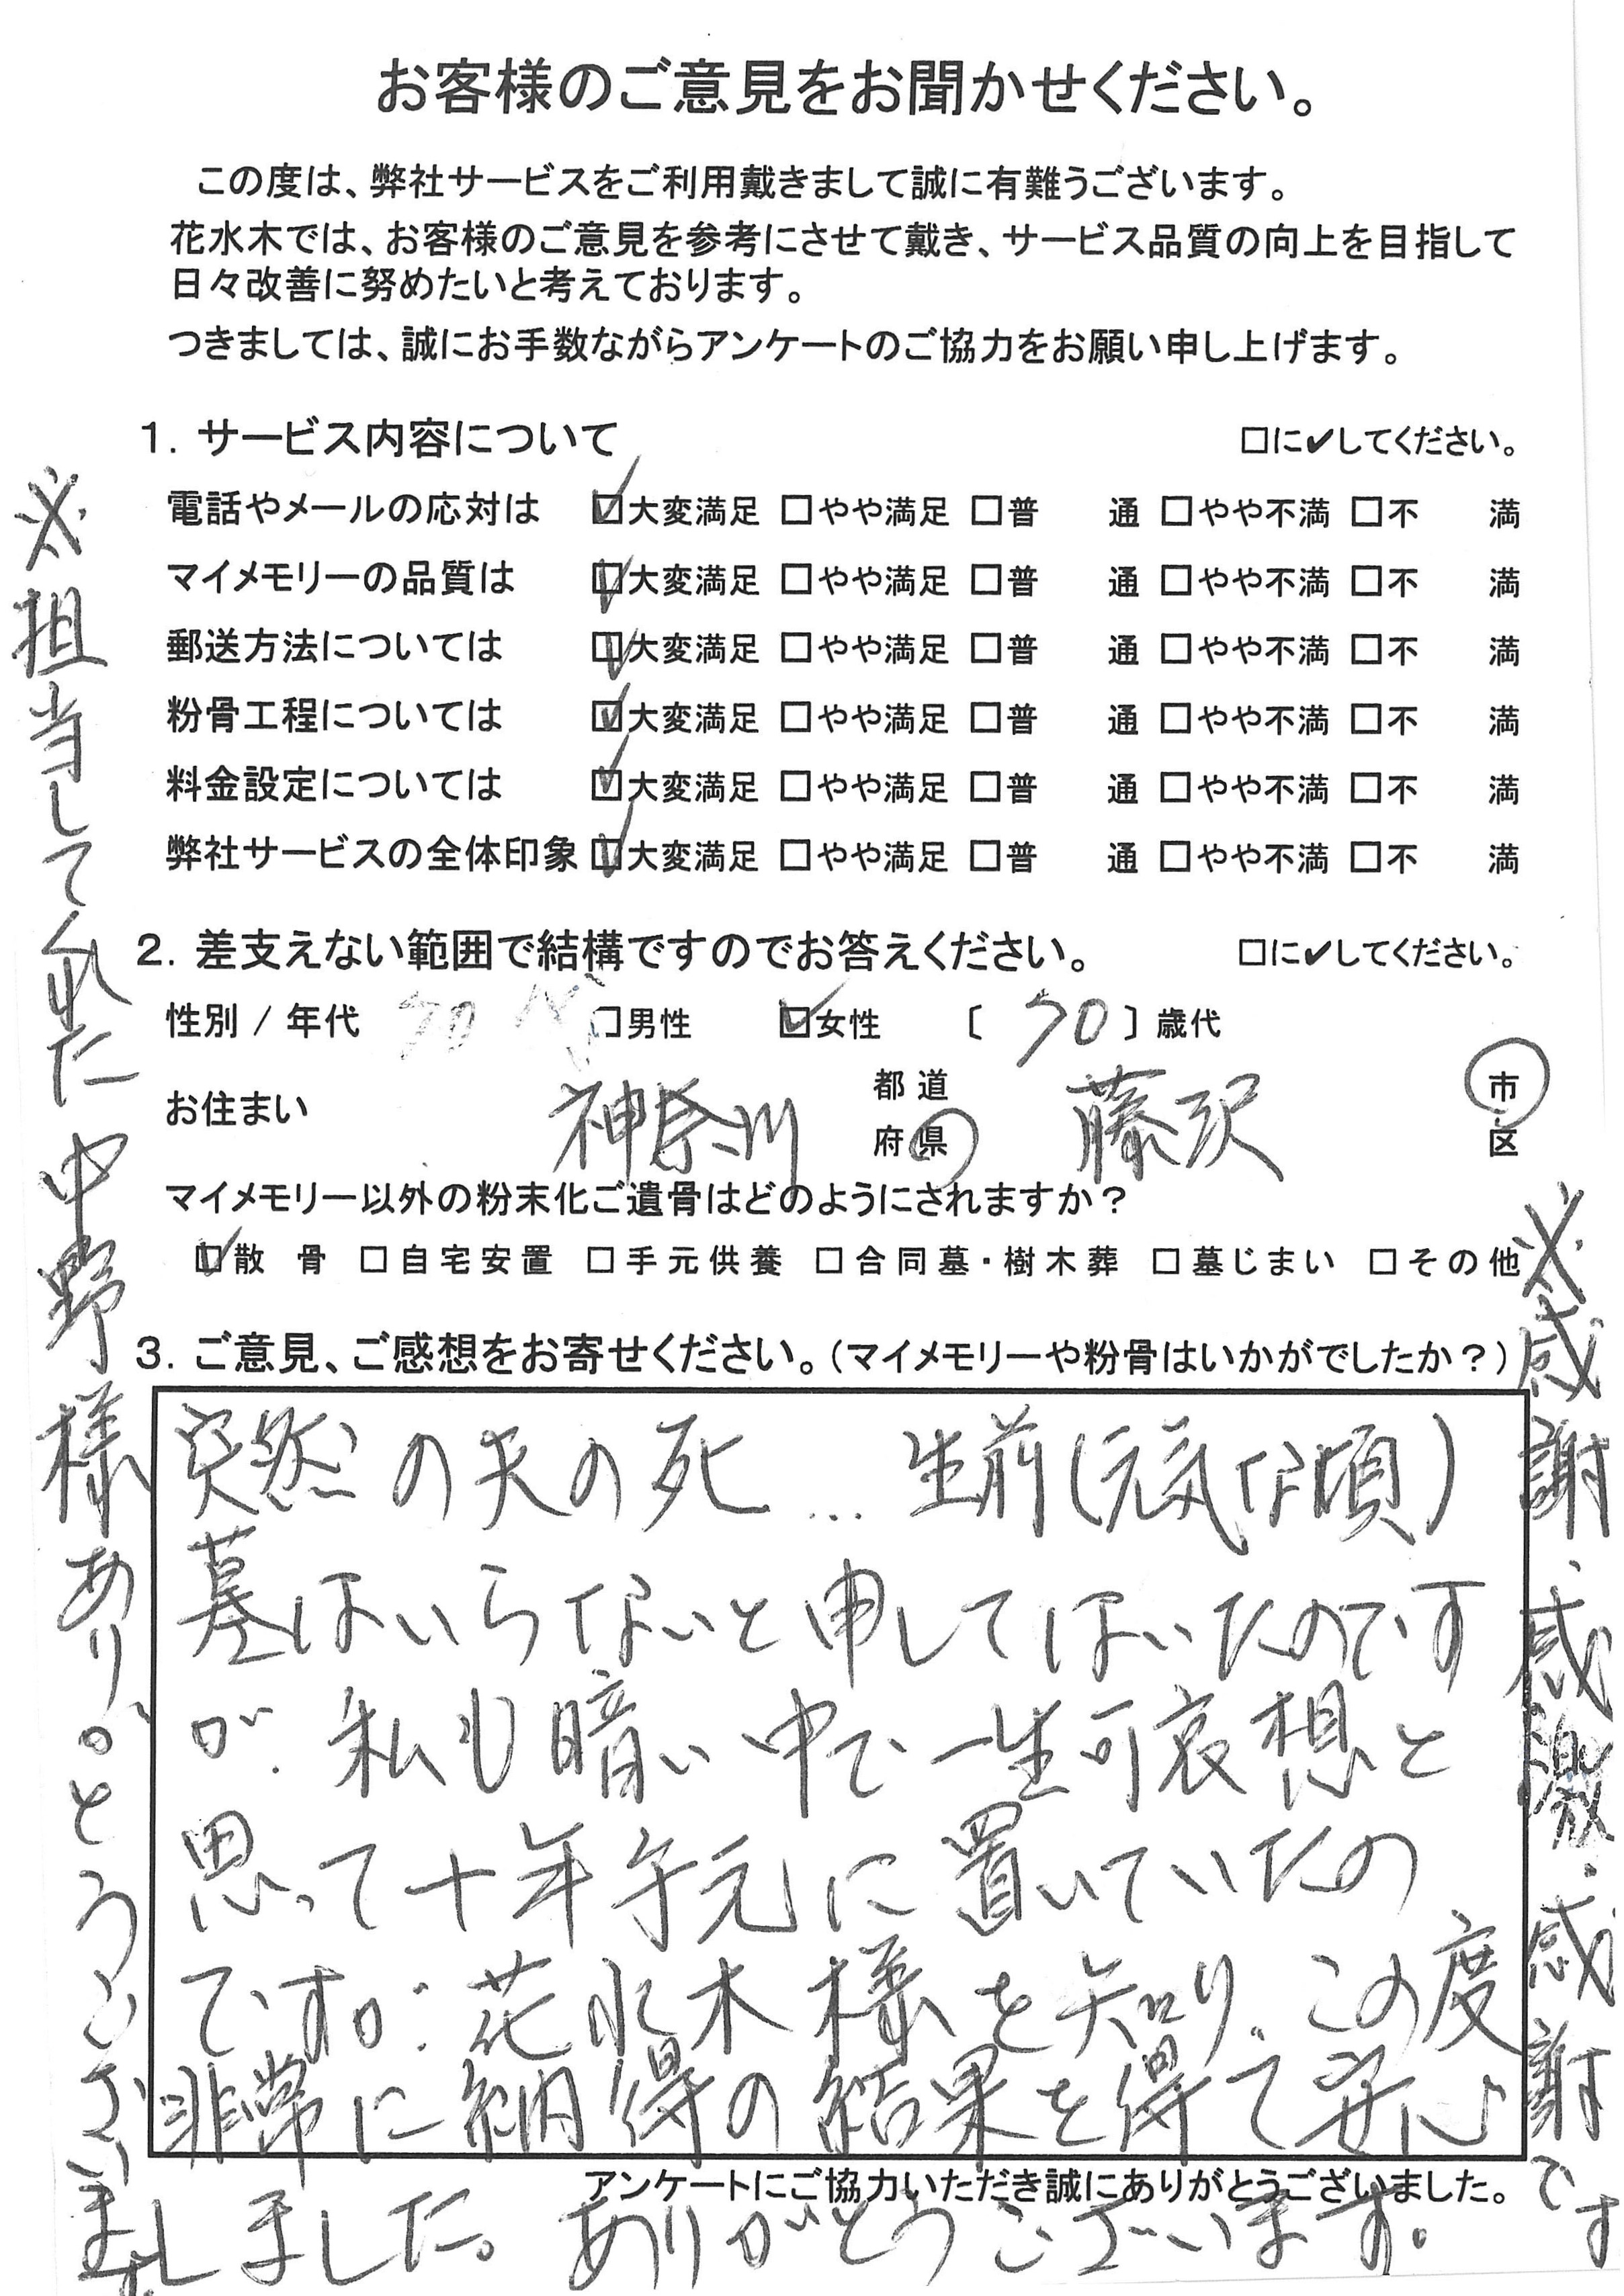 お客様のご意見をお聞かせください。
この度は、弊社サービスをご利用戴きまして誠に有難うございます。
花水木では、お客様のご意見を参考にさせて戴き、サービス品質の向上を目指して
日々改善に努めたいと考えております。
つきましては、誠にお手数ながらアンケートのご協力をお願い申し上げます。
1. サービス内容について □に✔してください。
電話やメールの応対は ☑大変満足 □やや満足 □普 通 □やや不満 □不 満
マイメモリーの品質は ☑大変満足 □やや満足 □普 通 □やや不満 □不 満
郵送方法については ☑大変満足 □やや満足 □普 通 □やや不満 □不 満
粉骨工程については ☑大変満足 □やや満足 □普 通 □やや不満 □不 満
料金設定については ☑大変満足 □やや満足 □普 通 □やや不満 □不 満
弊社サービスの全体印象 ☑大変満足 □やや満足 □普 通 □やや不満 □不 満
2. 差支えない範囲で結構ですのでお答えください。 □に✔してください。
性別 / 年代 70 □男性 ☑女性 〔 70 〕歳代
お住まい 神奈川 都道府県 藤沢 市区
マイメモリー以外の粉末化ご遺骨はどのようにされますか?
☑散 骨 □自宅安置 □手元供養 □合同墓・樹木葬 □墓じまい □その他
3. ご意見、ご感想をお寄せください。(マイメモリーや粉骨はいかがでしたか?)
突然の夫の死… 生前(元気な頃)
墓はいらないと申してはいたのです
が、私も暗い中で一生可哀想と
思って十年手元に置いていたの
ですが、花水木様を知り、この度
非常に納得の結果を得て安心
しました。ありがとうございます。
アンケートにご協力いただき誠にありがとうございました。
※担当してくれた中野様ありがとうございます
※感謝、感激、感謝です